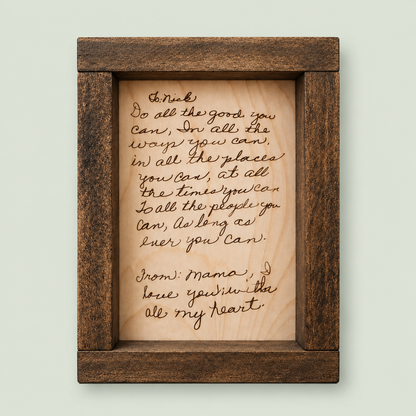 To: Nick
Do all the good you
can, In all the
ways you can,
in all the places
you can, at all
the times you can
To all the people you
can, As long as
ever you can.
From: Mama, I
love you with
all my heart.